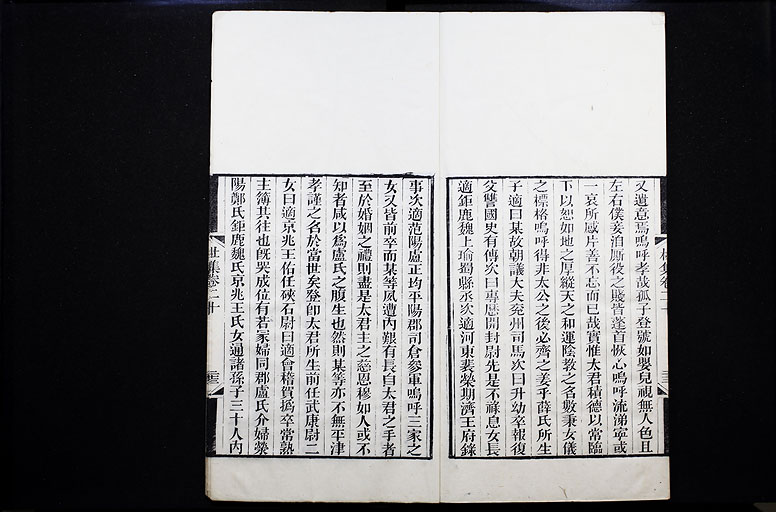 又遺意焉嗚呼孝哉孤子登號如嬰兒視無人色且
左右僕妾洎厮役之賤皆蓬首恢心嗚呼流涕寧或
一哀所感片善不忘而已哉實惟太君積德以常臨
下以恕如地之厚縱天之和運陰教之名數秉女儀
之標格嗚呼得非太公之後必齊之姜乎薛氏所生
子適曰某故朝議大夫兖州司馬次曰升幼卒報復
父讐國史有傳次曰專歷開封尉先是不祿息女長
適鉅鹿魏上瑜蜀縣丞次適河東裴榮期濟王府錄
事次適范陽盧正均平陽郡司倉參軍嗚呼三家之
女又皆前卒而某等夙遭內艱有長自太君之手者
至於婚姻之禮則盡是太君主之慈恩穆如人或不
知者咸以爲盧氏之腹生也然則某等亦不無平津
孝謹之名於當世矣登卽太君所生前任武康尉二
女曰適京兆王佑任硤石尉曰適會稽賀撝卒常熟
主簿其往也旣哭成位有若冢婦同郡盧氏介婦滎
陽鄭氏鉅鹿魏氏京兆王氏女通諸孫子三十人內
杜集卷二十